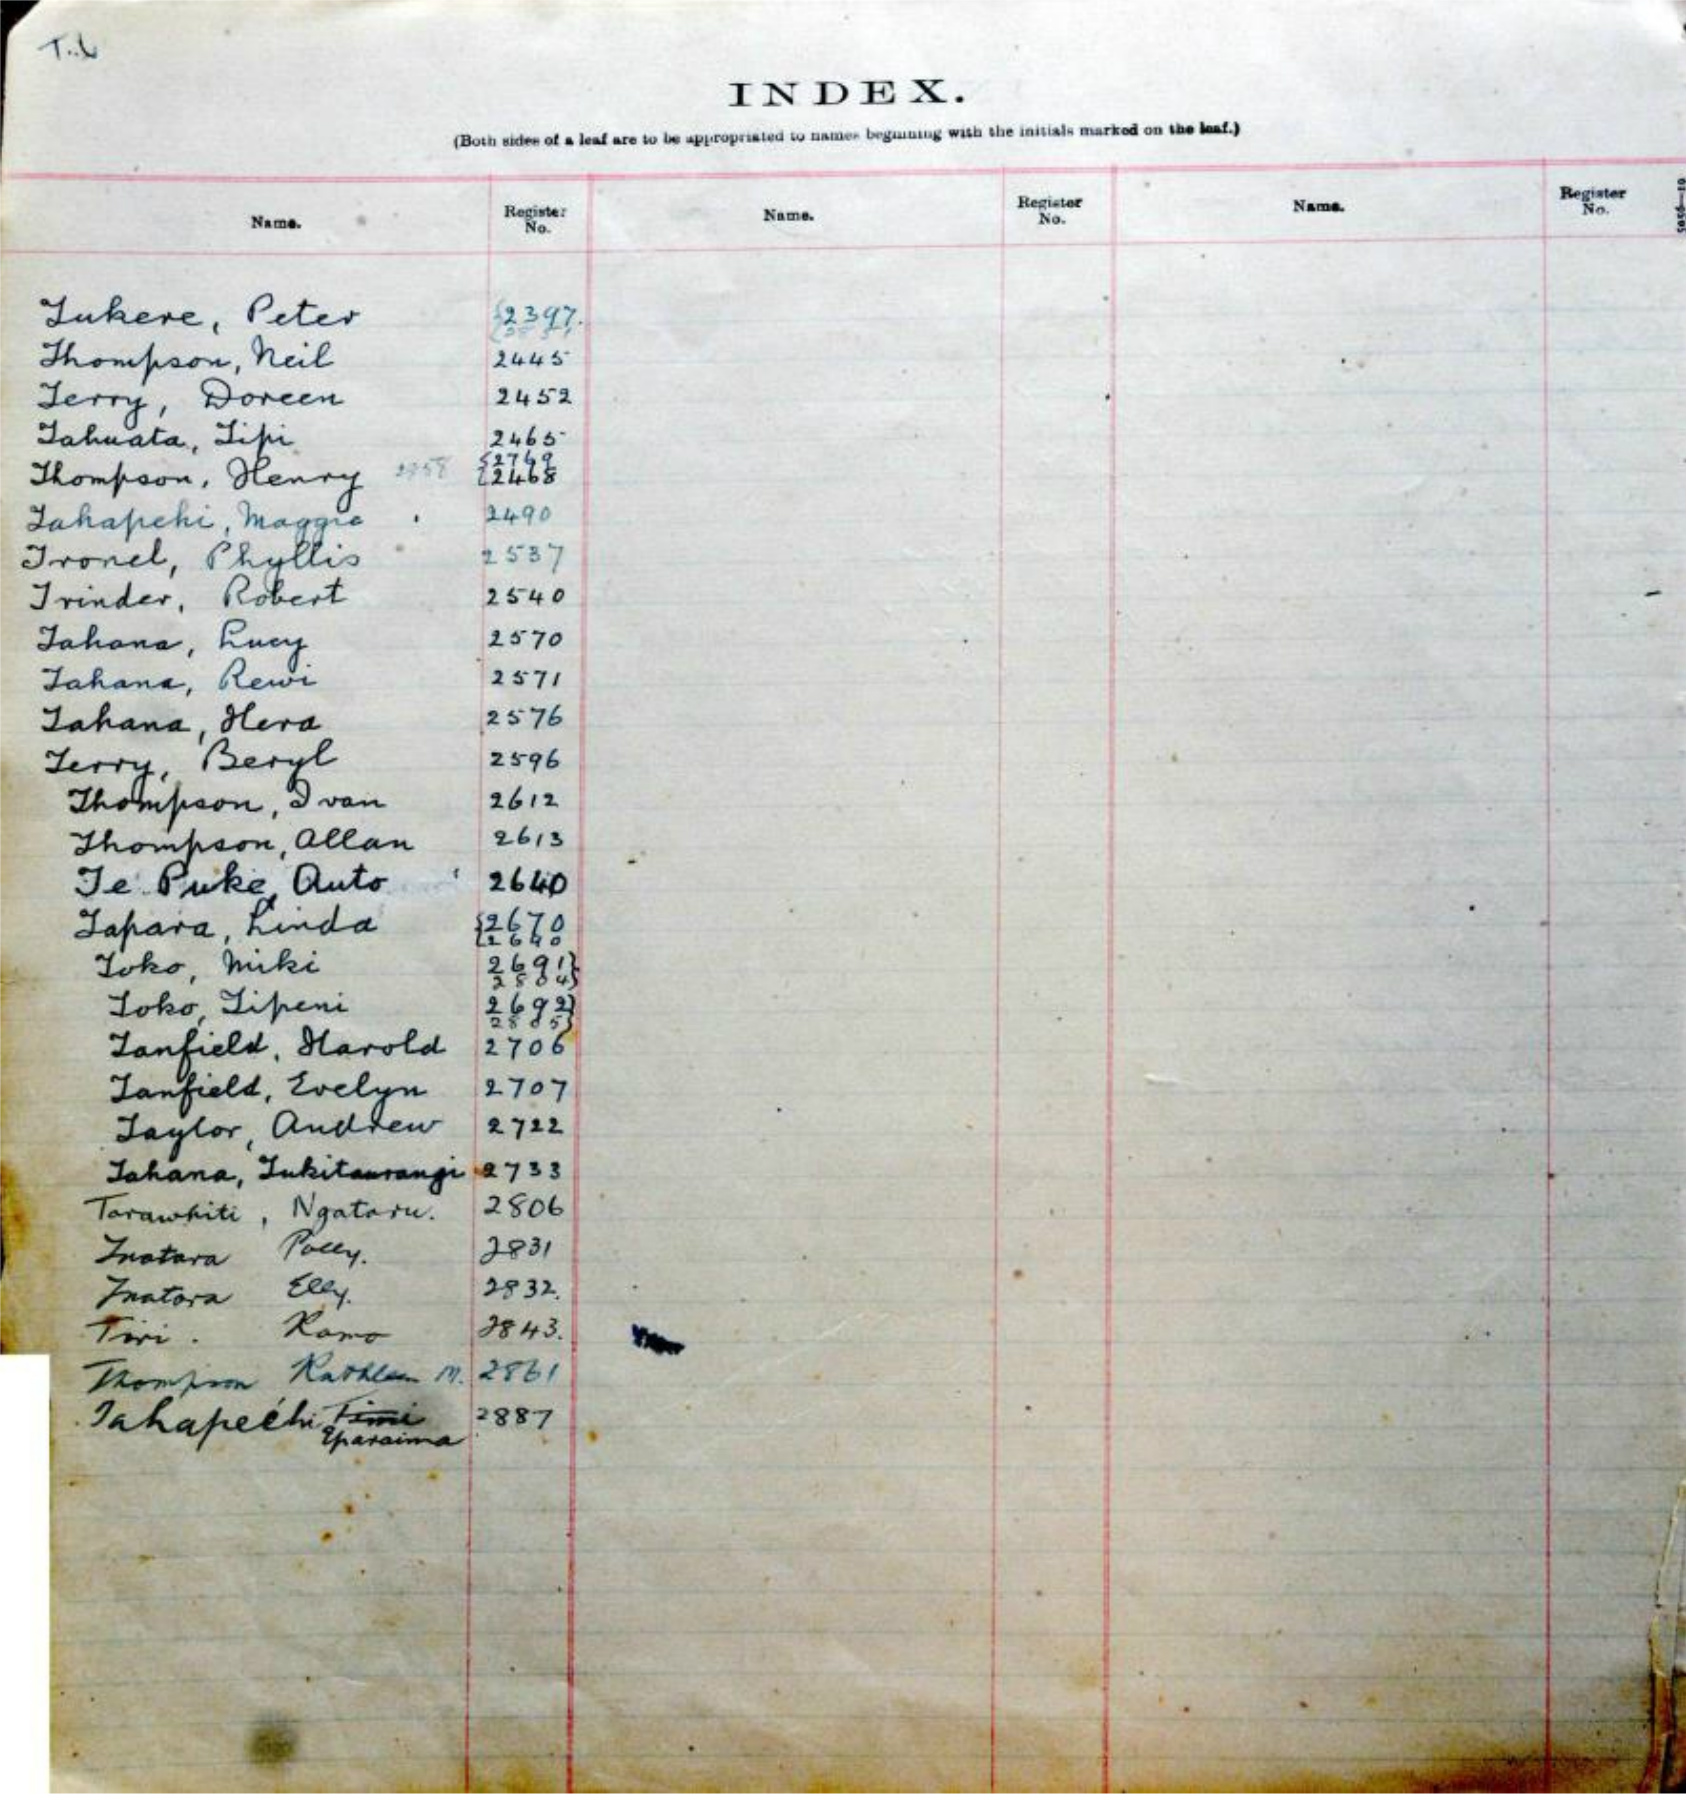 INDEX.
(Both sides of a leaf are to be appropriated to names beginning with the initials marked on the leaf.)
Name. Register No. Name. Register No. Name. Register No.
Tukere, Peter {2397.
Thompson, Neil 2445
Terry, Doreen 2452
Tahuata, Tipi 2465
Thompson, Henry 2958 {2769
{2468
Tahapehi, Maggie 2490
Tronel, Phyllis 2537
Trinder, Robert 2540
Tahana, Lucy 2570
Tahana, Rewi 2571
Tahana, Hera 2576
Terry, Beryl 2596
Thompson, Ivan 2612
Thompson, Allan 2613
Te Puke, Auto 2640
Tapara, Linda {2670
{2640
Toko, Miki 2691}
2804}
Toko, Tipeni 2692}
2805}
Tanfield, Harold 2706
Tanfield, Evelyn 2707
Taylor, Andrew 2722
Tahana, Tukitaurangi 2733
Tarawhiti, Ngataru. 2806
Tnatara Polly. 2831
Tnatora Elly. 2832.
Tiri. Ramo 2843.
Thompson Kathleen M. 2861
Tahapeehi Timi 2887
Eparaima